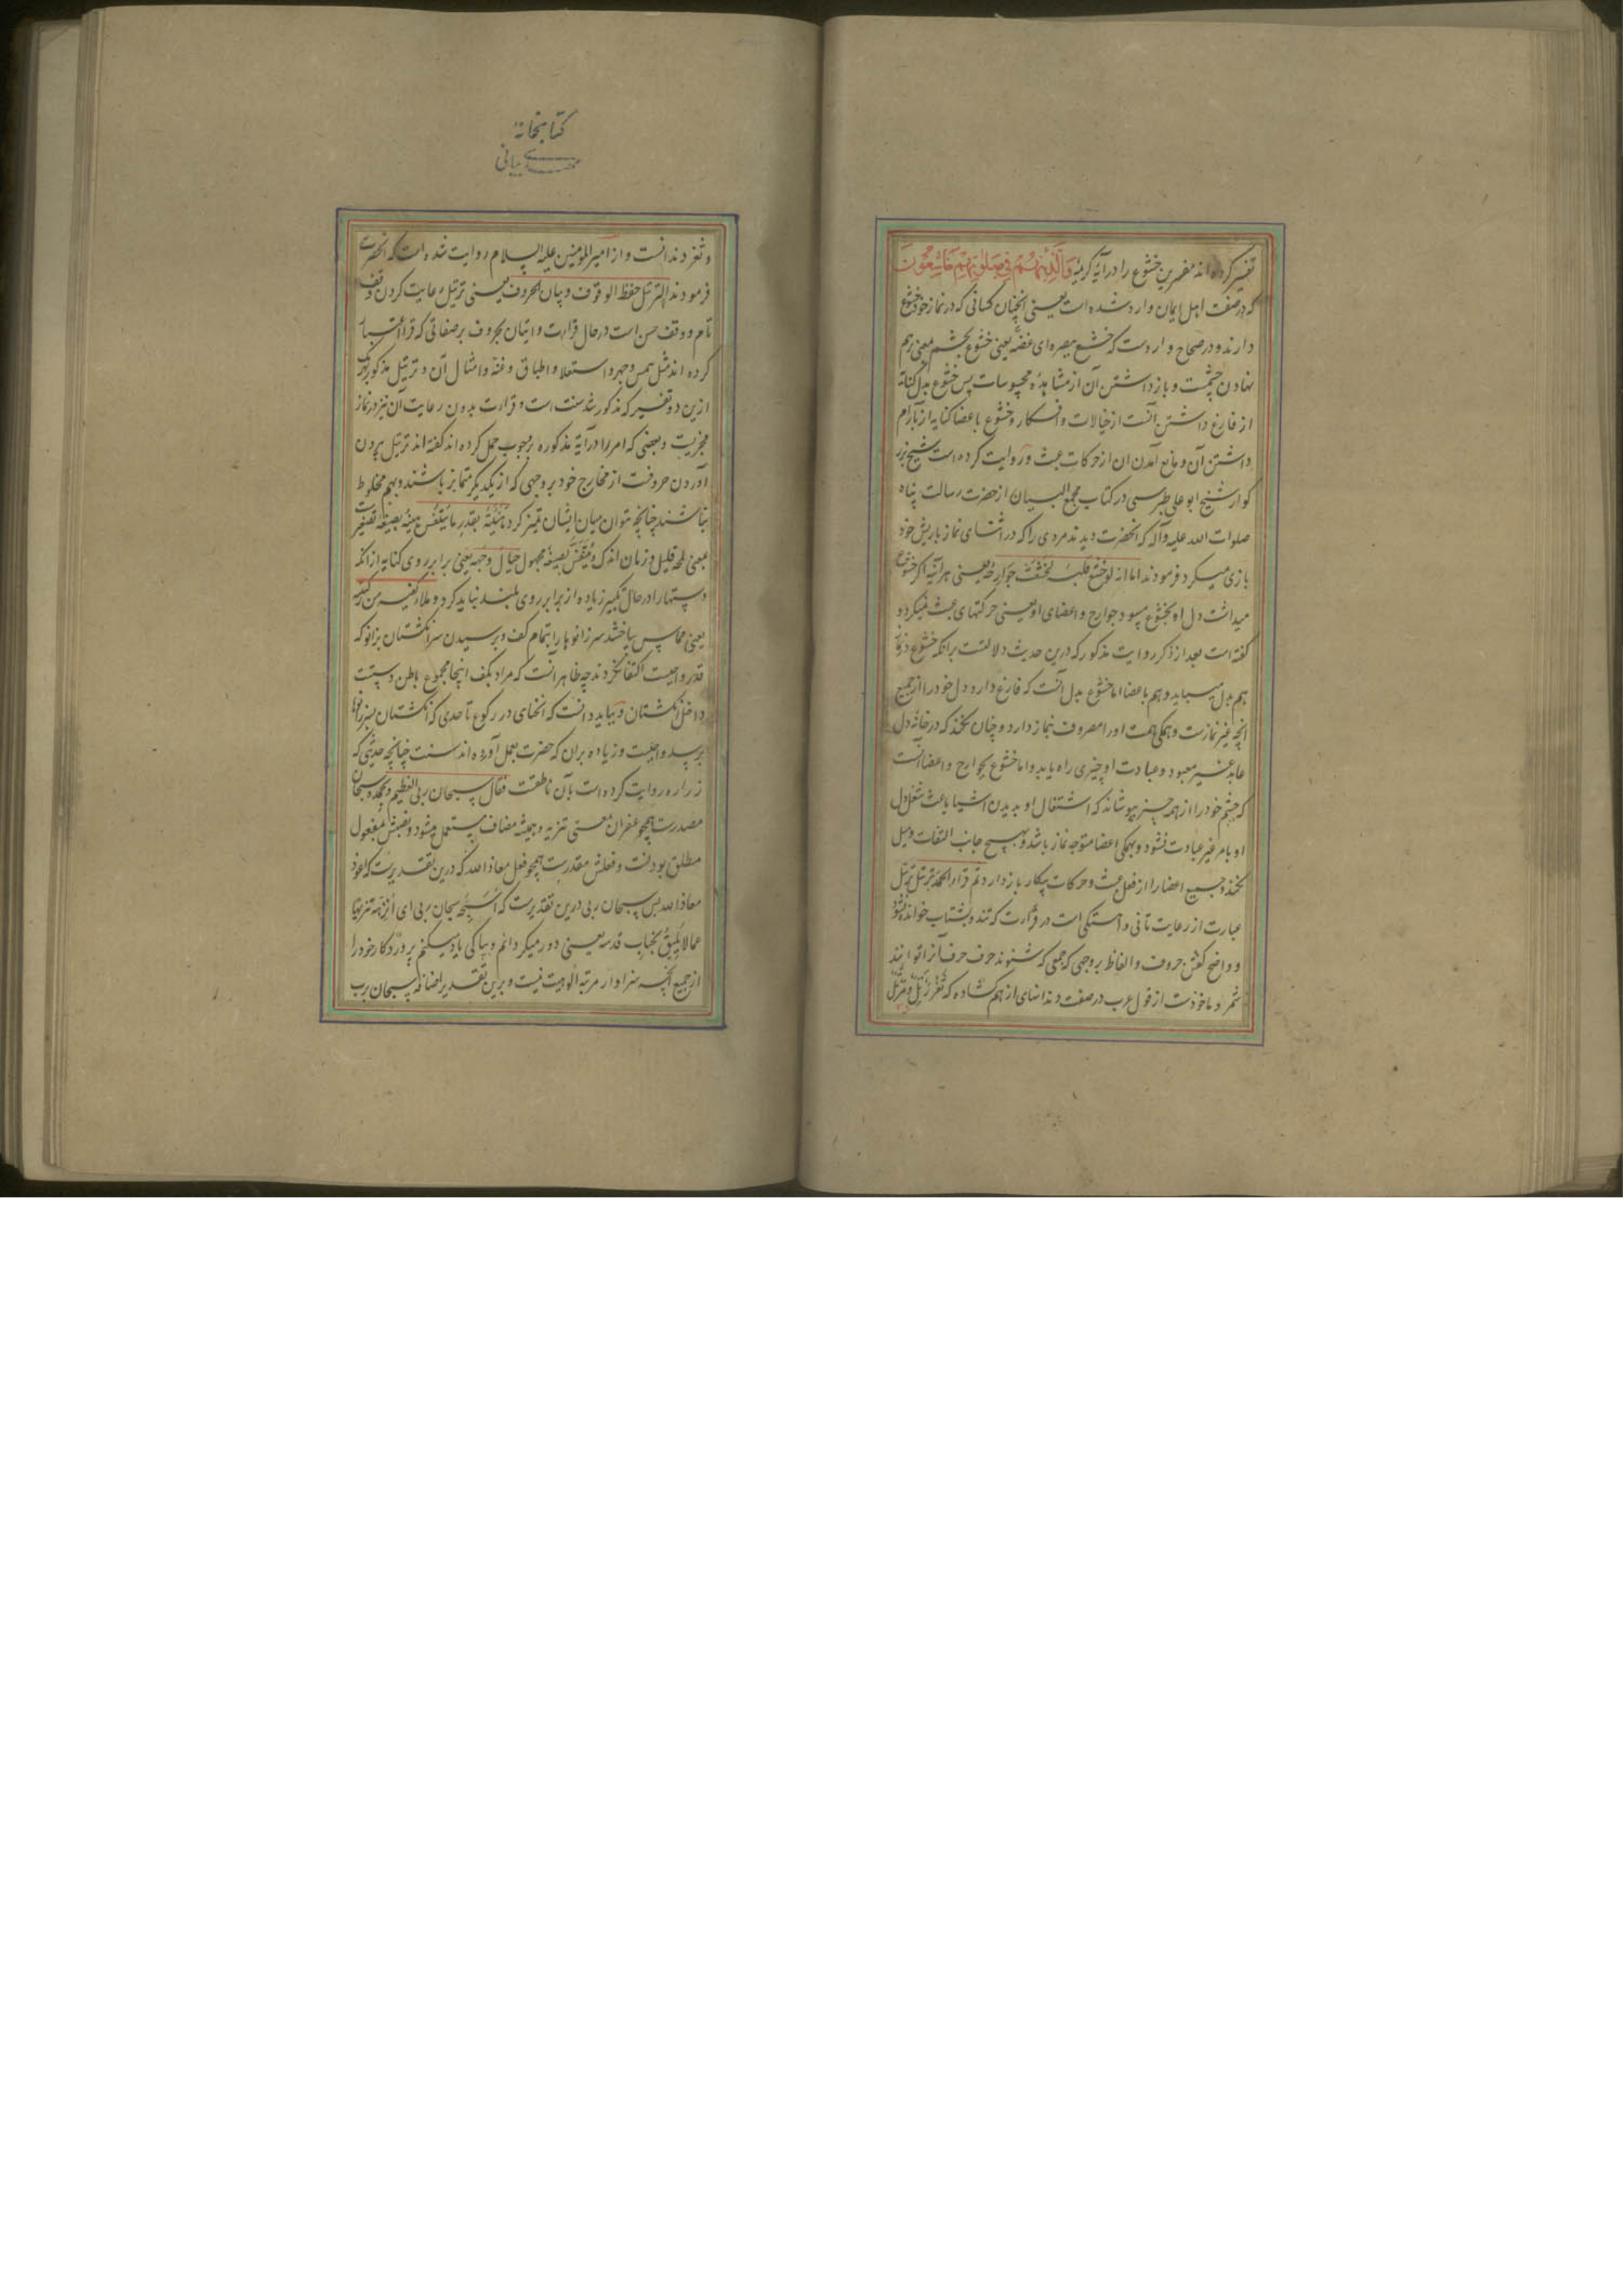 تفسیر کرده اند مفسرین خشوع را در آیه کریمه وَالَّذِینَ هُمْ فِی صَلٰوتِهِمْ خَاشِعُونَ
که در صفت اهل ایمان وارد شده است یعنی آنچنان کسانی که در نماز خود خشوع
دارند و در صحاح وارد است که خشع ببصره ای غضه یعنی خشوع بچشم معنی برهم
نهادن چشمست و باز داشتن آن از مشاهدۀ محسوسات پس خشوع بدل کنایه
از فارغ داشتن آنست از خیالات و افکار و خشوع باعضا کنایه از بآرام
داشتن آن و مانع آمدن ان از حرکات عبث و روایت کرده است شیخ بزر
کوار شیخ ابو علی طبرسی در کتاب مجمع البیان از حضرت رسالت پناه
صلوات الله علیه و آله که انحضرت دیدند مردی را که در اثنای نماز با ریش خود
بازی میکرد فرمودند اما انه لو خشع قلبه لخشعت جوارحه یعنی هر آینه اکر خشوع
میداشت دل او بخشوع میبود جوارح و اعضای او یعنی حرکتهای عبث نمیکرد و
کفته است بعد از ذکر روایت مذکور که درین حدیث دلالتست برانکه خشوع در نماز
هم بدل میباید و هم باعضا اما خشوع بدل آنست که فارغ دارد دل خود را از جمیع
انچه غیر نمازست و همکی همت او را مصروف نماز دارد و چنان نکند که در خانۀ دل
عابد غیر معبود و عبادت او چیزی راه یابد و اما خشوع بجوارح و اعضا آنست
که چشم خود را از همه چیز بپوشاند که اشتغال او بدیدن اشیا باعث شغل دل
او بامر غیر عبادت نشود و بهمکی اعضا متوجه نماز باشد و بهیچ جانب التفات و میل
نکند و جمیع اعضا را از فعل عبث و حرکات بیکار باز دارد ثم قرا الحمد بترتیل ترتیل
عبارت از رعایت تأنی و آهستکی است در قرائت که تند و بشتاب خوانده نشود
و واضح کفتن حروف و الفاظ بروجهی که جمعی که شنوند حرف حرف آنرا توانند
شمرد و ماخوذست از قول عرب در صفت دندانهای از هم کشاده که ثغر رتل و مرتل
کتابخانۀ
مهدی بیانی
و ثغر دندانست و از امیر المومنین علیه السلام روایت شده است که انحضرت
فرمودند الترتیل حفظ الوقوف و بیان الحروف یعنی ترتیل رعایت کردن وقف
تام و وقف حسن است در حال قراءت و اتیان بحروف بر صفاتی که قرا اعتبار
کرده اند مثل همس و جهر و استعلا و اطباق و غنه و امثال آن و ترتیل مذکور بهر یک
ازین دو تفسیر که مذکور شد سنت است و قراءت بدون رعایت آن نیز در نماز
مجزیست و بعضی که امر را در آیۀ مذکوره بر وجوب حمل کرده اند کفته اند ترتیل بیرون
آوردن حروفست از مخارج خود بروجهی که از یکدیکر متمایز باشند و بهم مخلوط
نباشند چنانچه بتوان میان ایشان تمیز کرد هنیئة بقدر ما یتنفس هنیه بصیغه تصغیر
بمعنی لمحه قلیل و زمان اندک و یتنفس بصیغه مجهول حیال وجهه یعنی برابر روی کنایه از انکه
دستها را در حال تکبیر زیاده از برابر روی بلند نباید کرد و ملأ کفیه من رکبتیه
یعنی مماس ساختند سر زانوها را بتمام کف و برسیدن سر انکشتان بزانو که
قدر واجبست اکتفا نکردند چه ظاهر آنست که مراد بکف اینجا مجموع باطن دستست
داخل انکشتان و بباید دانست که انحنای در رکوع تا حدی که انکشتان بسر زانوها
برسد واجبست و زیاده بران که حضرت بعمل آورده اند سنت چنانچه حدیثی که
زراره روایت کرده است بآن ناطقست فقال سبحان ربی العظیم و بحمده و سبحان
مصدرست همچو غفران بمعنی تنزیه و همیشه مضاف مستعمل میشود و نصبش بمفعول
مطلق بودنست و فعلش مقدرست همچو فعل معاذ الله که درین تقدیرست که اعوذ
معاذ الله پس سبحان ربی درین تقدیرست که اسبحه سبحان ربی ای أنزهه تنزیها
عما لا یلیق بجناب قدسه یعنی دور میکردانم و بپاکی یاد میکنم پروردکار خود را
از جمیع آنچه سزاوار مرتبه الوهیت نیست و برین تقدیر اضافه سبحان برب